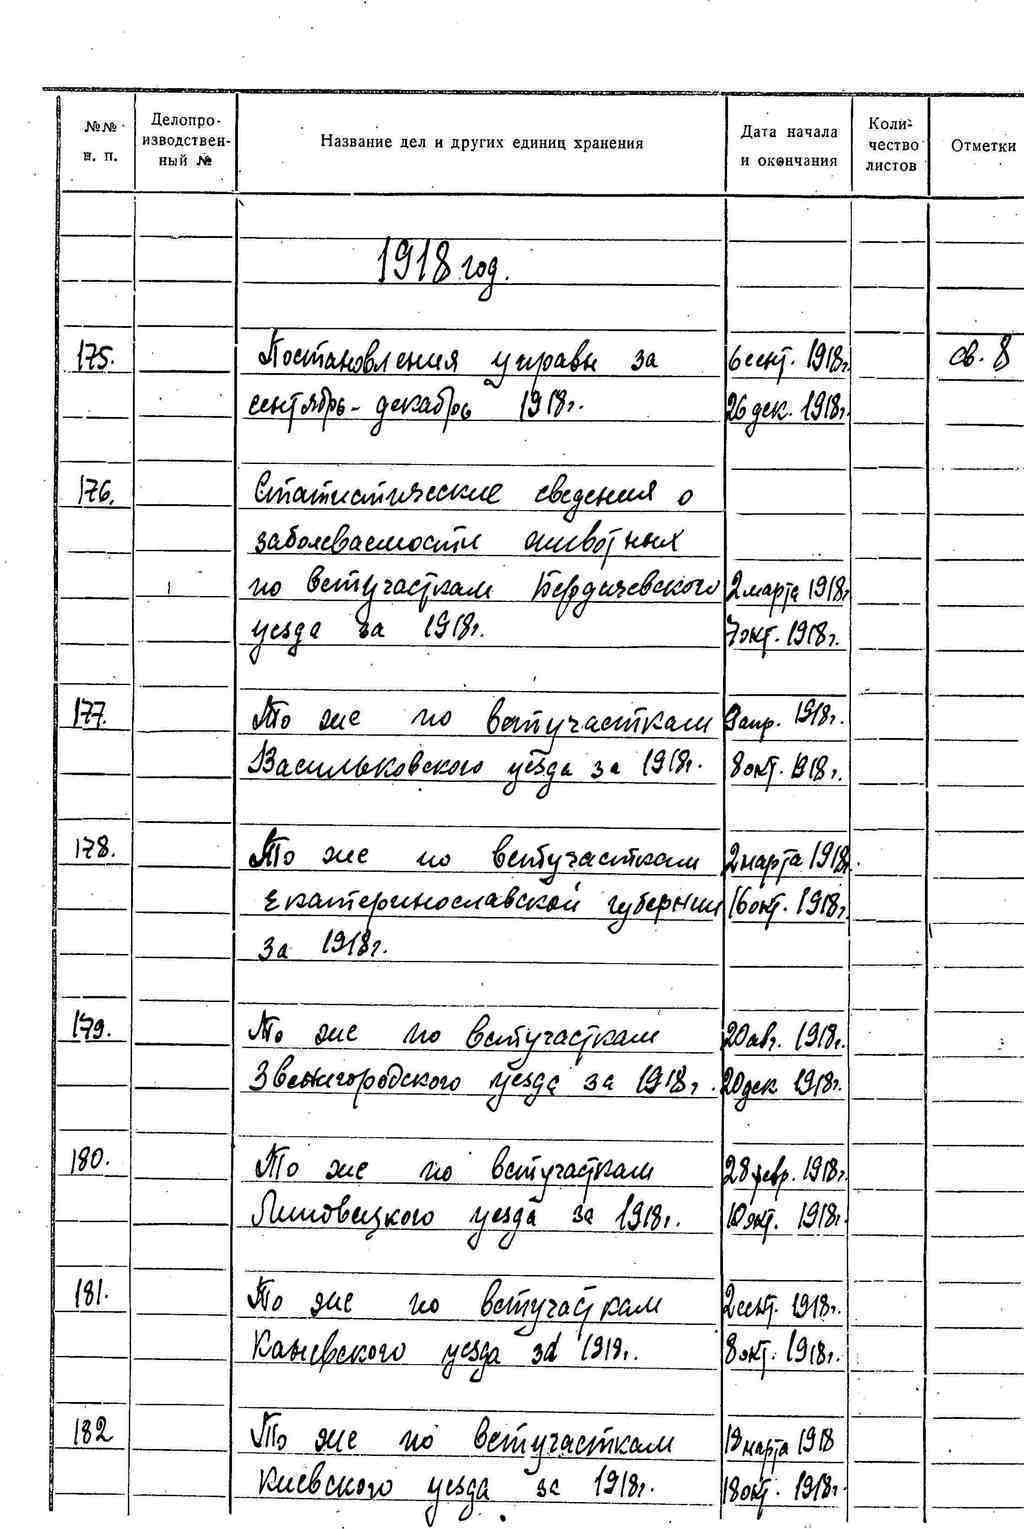 №№ н. п.
Делопроизводственный №
Название дел и других единиц хранения
Дата начала и окончания
Количество листов
Отметки
1918 год.
175. Постановления управы за 6 сент. 1918г. св. 8
сентябрь - декабрь 1918г. 26 дек. 1918г.
176. Статистические сведения о
заболеваемости животных
по ветучасткам Бердичевского 2 марта 1918г
уезда за 1918г. 7 окт. 1918г.
177. То же по ветучасткам 9 апр. 1918г.
Васильковского уезда за 1918г. 8 окт. 1918г.
178. То же по ветучасткам 2 марта 1918г.
Екатеринославской губернии 16 окт. 1918г.
за 1918г.
179. То же по ветучасткам 20 авг. 1918г.
Звенигородского уезда за 1918г. 20 дек 1918г.
180. То же по ветучасткам 28 февр. 1918г.
Липовецкого уезда за 1918г. 10 окт. 1918г.
181. То же по ветучасткам 2 сент. 1918г.
Каневского уезда за 1918г. 8 окт. 1918г.
182 То же по ветучасткам 18 марта 1918
Киевского уезда за 1918г. 18 окт. 1918г.